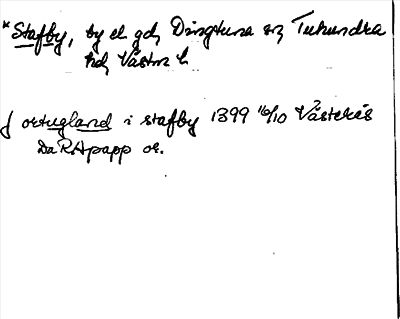 *Stafby, by el. gd, Dingtuna sn, Tuhundra
hd, Västm l.
J ortugland i stafby 1399 16/10 Västerås
Da RA papp or.